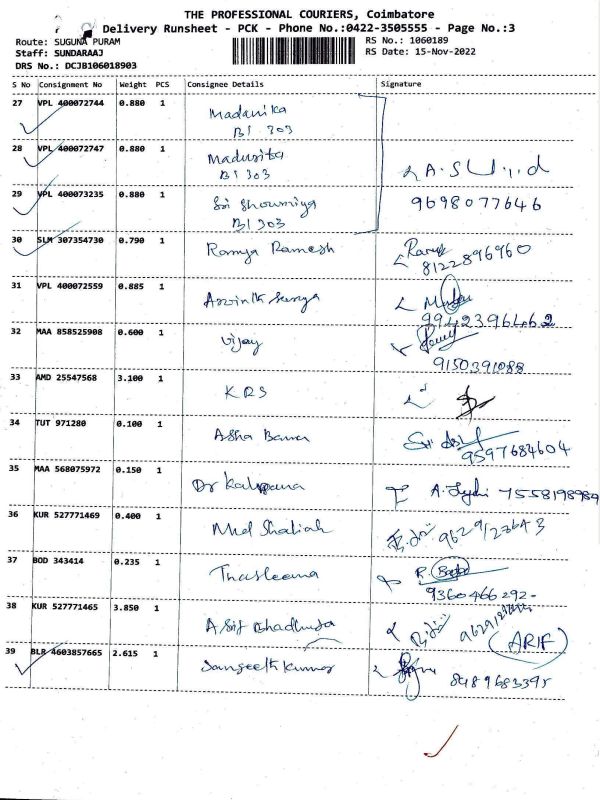 THE PROFESSIONAL COURIERS, Coimbatore
Delivery Runsheet - PCK - Phone No.:0422-3505555 - Page No.:3
Route: SUGUNA PURAM
RS No.: 1060189
Staff: SUNDARAAJ
RS Date: 15-Nov-2022
DRS No.: DCJB106018903
S No Consignment No Weight PCS Consignee Details Signature
27 VPL 400072744 0.880 1 Madanika
B1 303
28 VPL 400072747 0.880 1 Madusita
B1 303
29 VPL 400073235 0.880 1 Sri Showmiya 9698077646
B1 303
30 SLM 307354730 0.790 1 Ramya Ramesh
8122896960
31 VPL 400072559 0.885 1 Arvinth Surya
9942396462
32 MAA 858525908 0.600 1 Vijay
9150391088
33 AMD 25547568 3.100 1 KRS
34 TUT 971280 0.100 1 Asha Banu
9597684604
35 MAA 568075972 0.150 1 Dr Kalpana 7558198989
36 KUR 527771469 0.400 1 Mhd Shaliah
37 BOD 343414 0.235 1 Thasleema
9360466292
38 KUR 527771465 3.850 1 Asif Bhadhusa
(ARIF)
39 BLR 4603857665 2.615 1 Sangeeth Kumar
8489683395